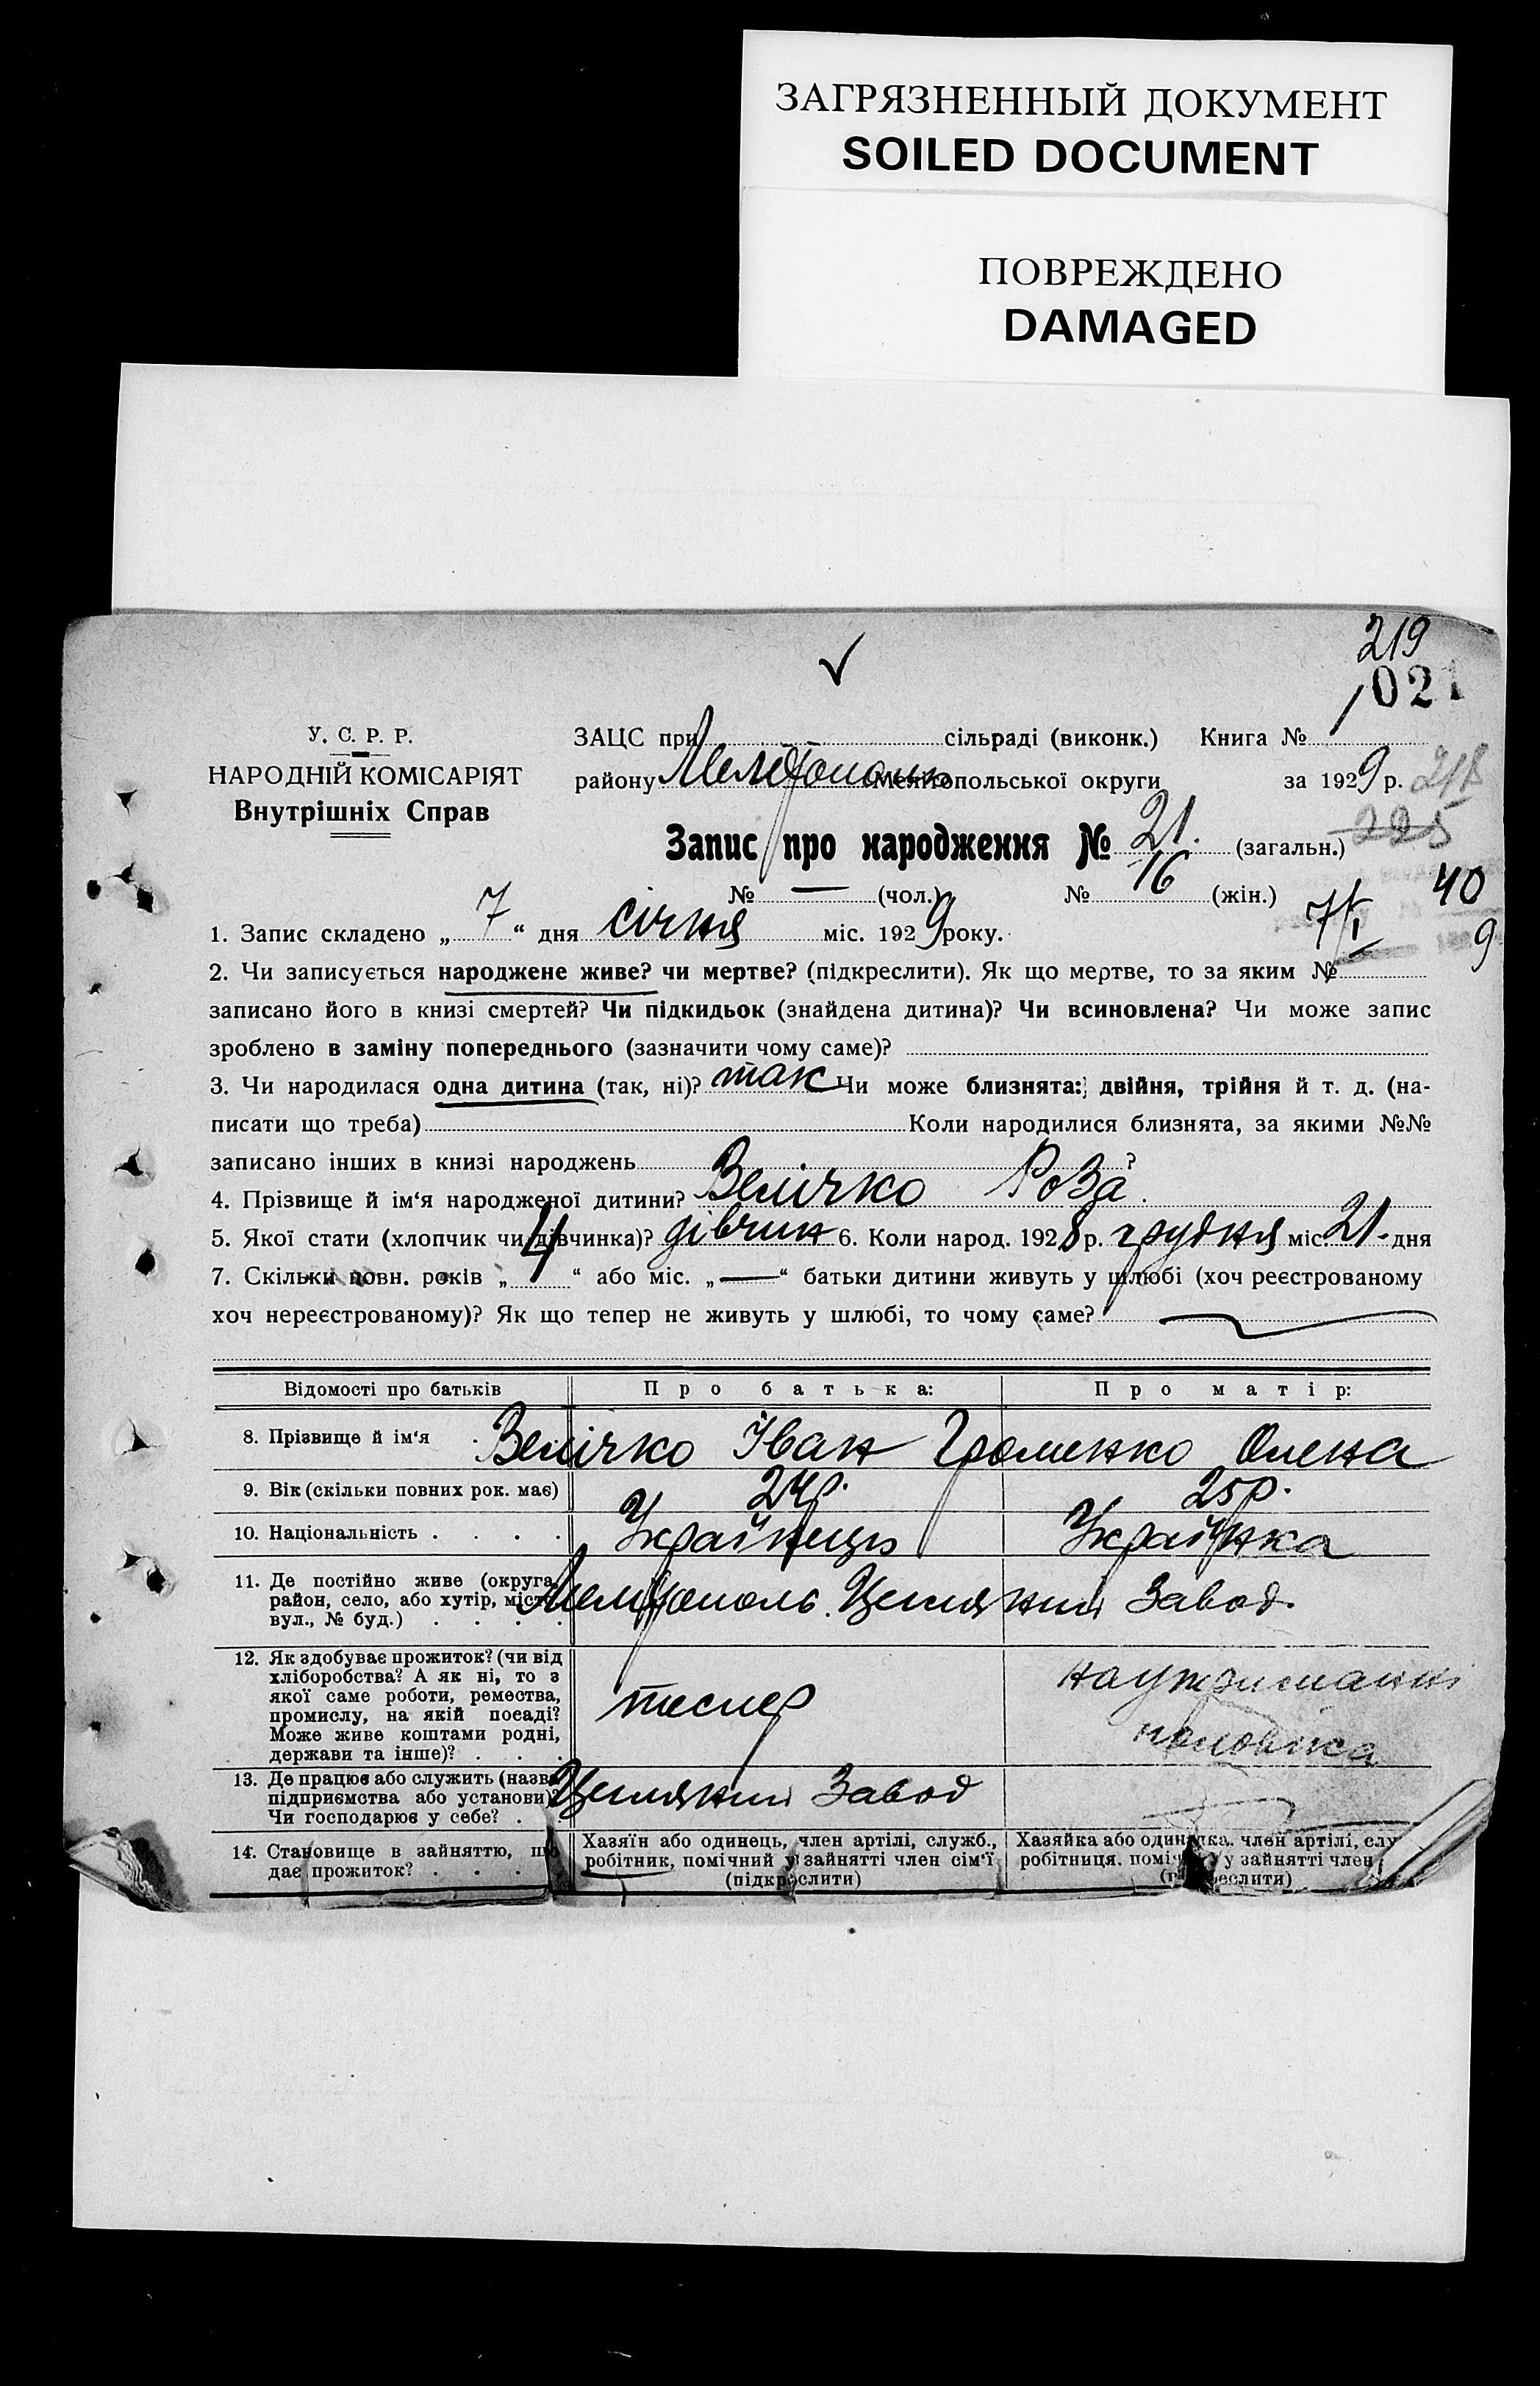 ЗАГРЯЗНЕННЫЙ ДОКУМЕНТ
SOILED DOCUMENT
ПОВРЕЖДЕНО
DAMAGED
219
021
У. С. Р. Р.
НАРОДНІЙ КОМІСАРІЯТ
Внутрішніх Справ
ЗАЦС при сільраді (виконк.) Книга №
району Мелітополь Мелітопольської округи за 1929 р. 218
225
Запис про народження № 21. (загальн.)
№ — (чол.) № 16 (жін.) 40
7/I 9
1. Запис складено „ 7 “ дня січня міс. 1929 року.
2. Чи записується народжене живе? чи мертве? (підкреслити). Як що мертве, то за яким №
записано його в книзі смертей? Чи підкидьок (знайдена дитина)? Чи всиновлена? Чи може запис
зроблено в заміну попереднього (зазначити чому саме)?
3. Чи народилася одна дитина (так, ні)? так Чи може близнята: двійня, трійня й т. д. (на-
писати що треба) Коли народилися близнята, за якими №№
записано інших в книзі народжень ?
4. Прізвище й ім‘я народженої дитини? Велічко Роза.
5. Якої стати (хлопчик чи дівчинка)? дівчин 6. Коли народ. 1928 р. грудня міс. 21. дня
7. Скільки повн. років „ 4 “ або міс. „ — “ батьки дитини живуть у шлюбі (хоч реєстрованому
хоч нереєстрованому)? Як що тепер не живуть у шлюбі, то чому саме?
Відомості про батьків Про батька: Про матір:
8. Прізвище й ім‘я Велічко Іван Громенко Олена
9. Вік (скільки повних рок. має) 24р. 25р.
10. Національність . . . . Українець Українка
11. Де постійно живе (округа,
район, село, або хутір, місто, Мелітополь. Цегляний Завод.
вул., № буд.) . . . .
12. Як здобуває прожиток? (чи від
хліборобства? А як ні, то з
якої саме роботи, ремества, тесляр на утриманні
промислу, на якій посаді? чоловіка
Може живе коштами родні,
держави та інше)? . . .
13. Де працює або служить (назва
підприємства або установи)? Цегляний Завод
Чи господарює у себе? .
14. Становище в зайняттю, що
дає прожиток? . . . .
Хазяїн або одинець, член артілі, служб.,
робітник, помічний у зайнятті член сім‘ї
(підкреслити)
Хазяйка або одиначка, член артілі, слу
робітниця, поміч у зайнятті член
еслити)